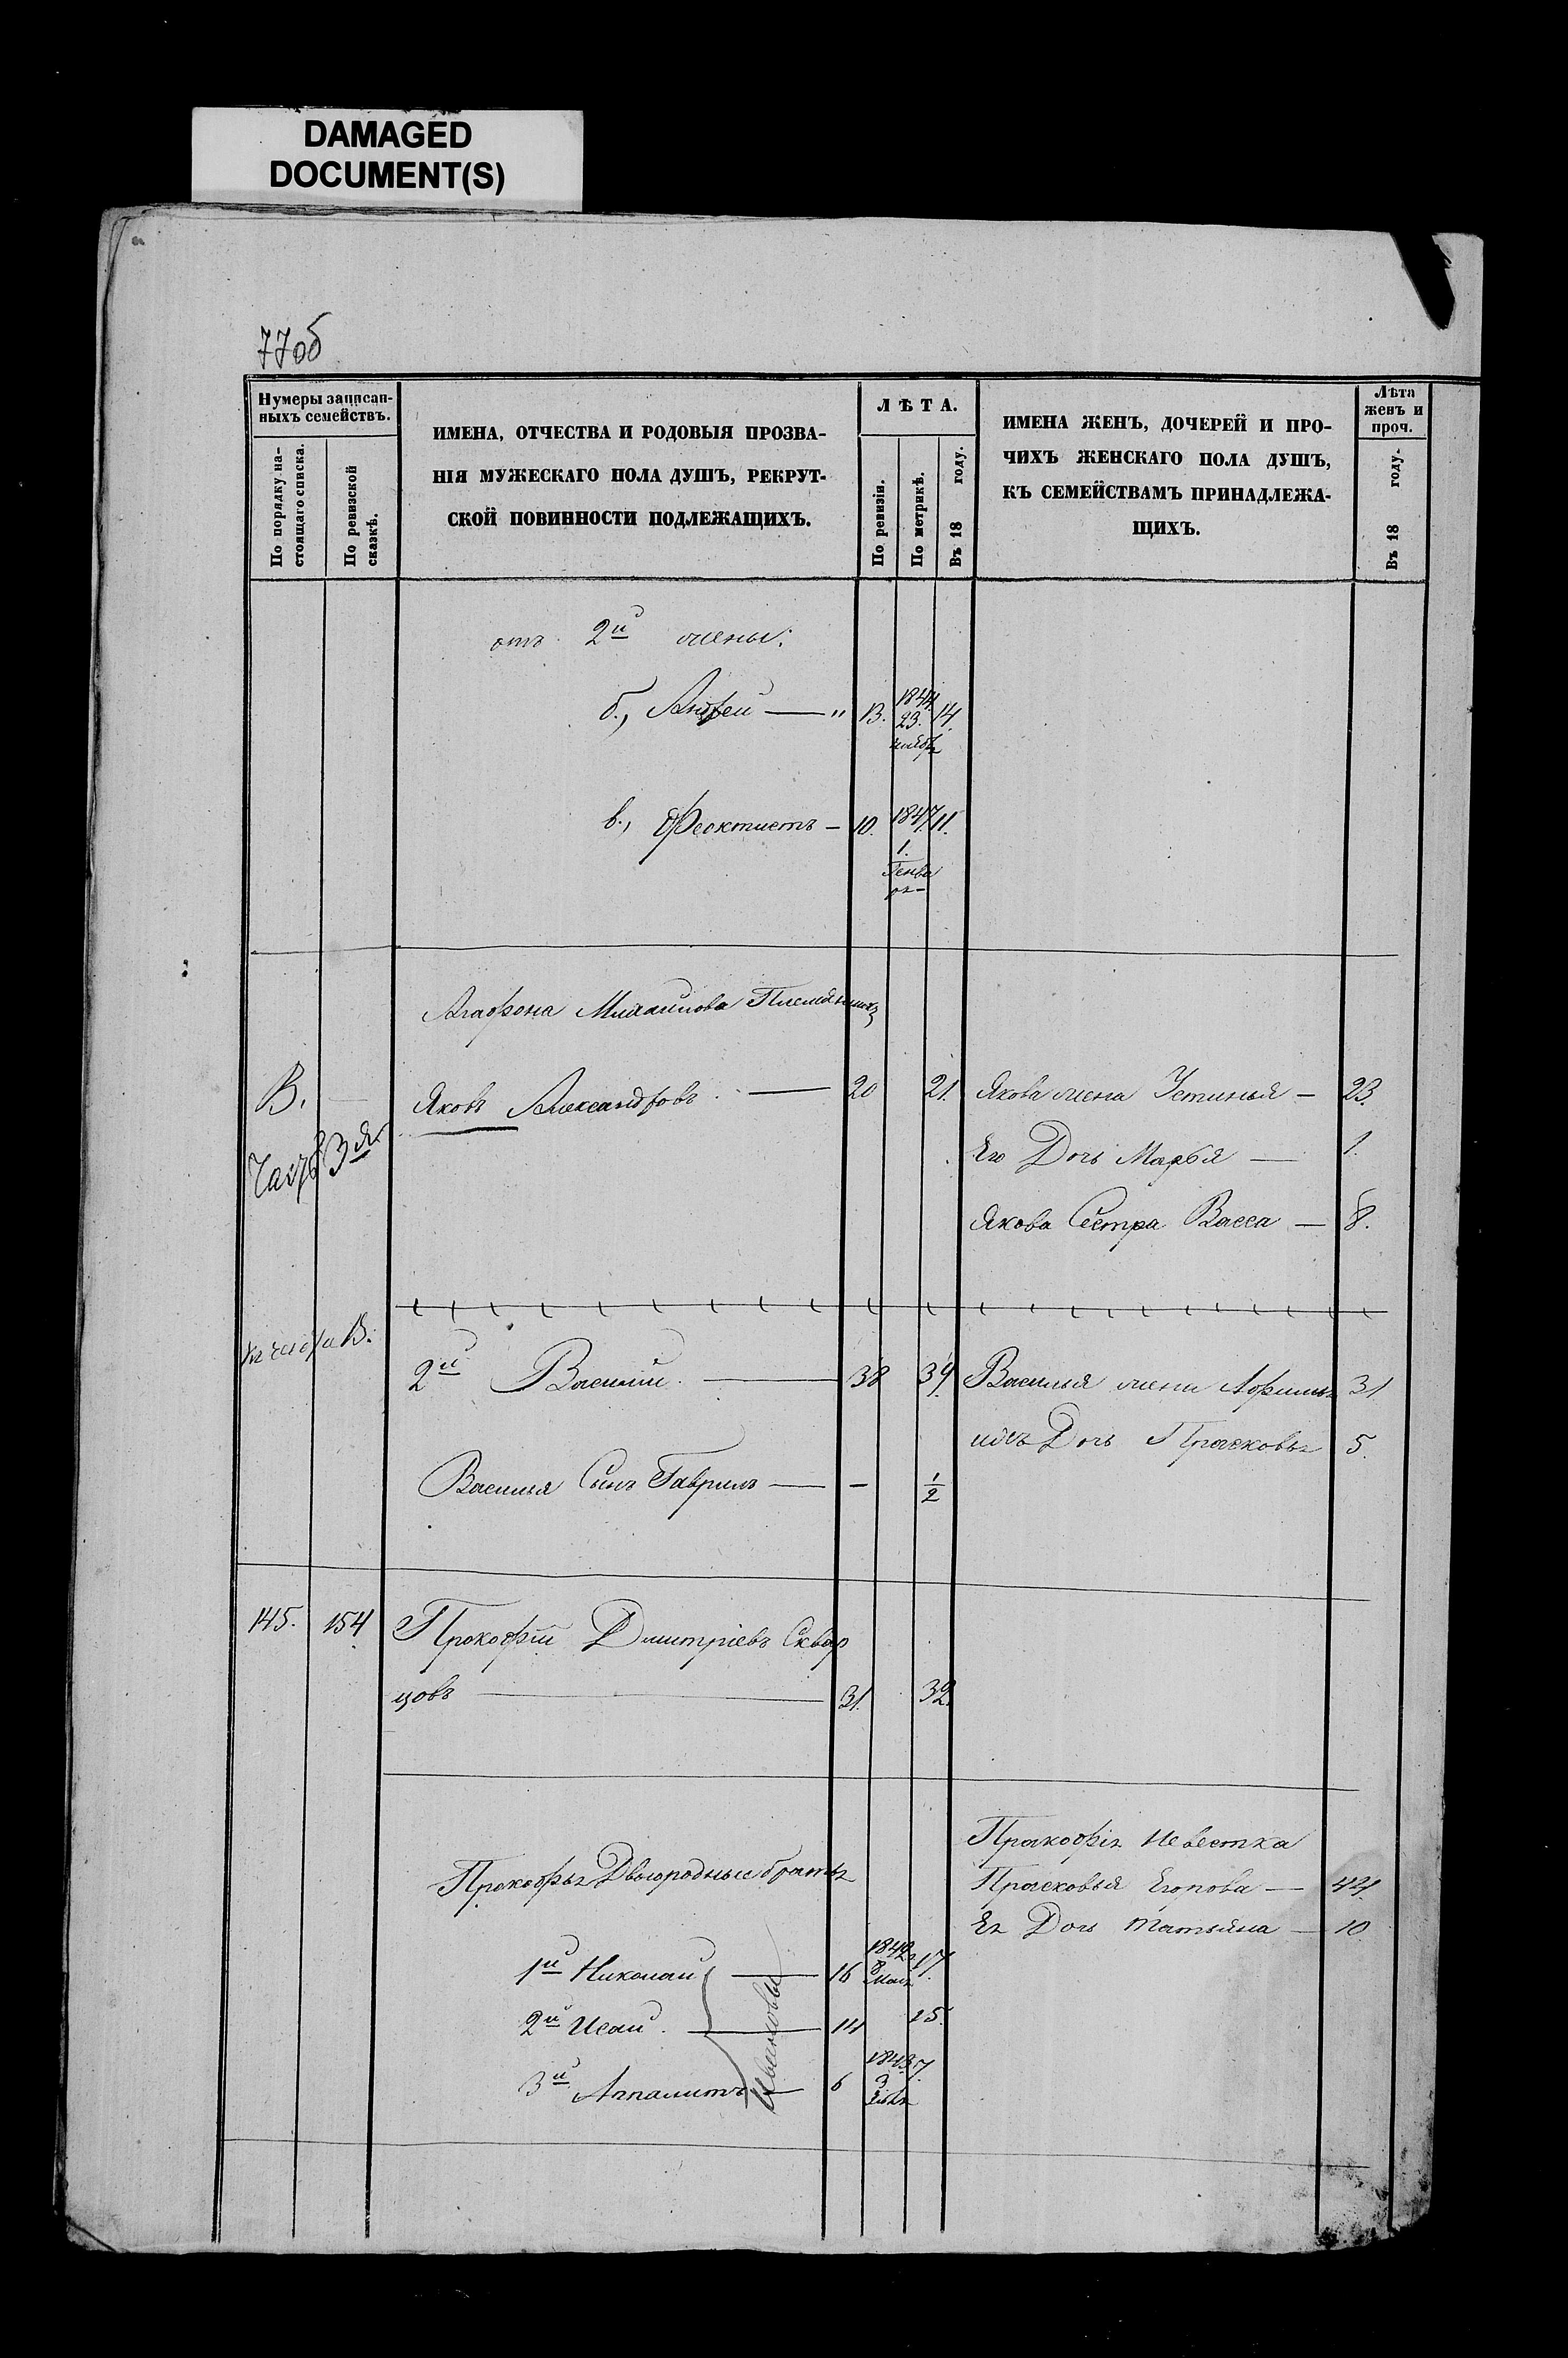 DAMAGED
DOCUMENT(S)
77об
Нумеры записан-
ныхъ семействъ.
По порядку на-
стоящаго списка.
По ревизской
сказкѣ.
ИМЕНА, ОТЧЕСТВА И РОДОВЫЯ ПРОЗВА-
НІЯ МУЖЕСКАГО ПОЛА ДУШЪ, РЕКРУТ-
СКОЙ ПОВИННОСТИ ПОДЛЕЖАЩИХЪ.
ЛѢТА.
По ревизіи.
По метрикѣ.
Въ 18 году.
ИМЕНА ЖЕНЪ, ДОЧЕРЕЙ И ПРО-
ЧИХЪ ЖЕНСКАГО ПОЛА ДУШЪ,
КЪ СЕМЕЙСТВАМЪ ПРИНАДЛЕЖА-
ЩИХЪ.
Лѣта
женъ и
проч.
Въ 18 году.
отъ 2й жены:
б., Андрей — " 13. 1844. 23. 14.
в., Феоктистъ — 10. 1847 11.
1.
Генва
ря
Агафона Михайлова Племянникъ
В. Яковъ Александровъ. — 20 21. Якова жена Устинья — 23.
Часть 3я.
Его Дочь Марья — 1.
Якова Сестра Васса — 8.
В.
2й Василий. — 38 39 Василья жена 31
ихъ Дочь Прасковья 5.
Василья Сынъ Гаврило — — 1/2
145. 154 Прокофій Дмитріевъ Сквор
цовъ — 31. 32.
Прокофья Невестка
Прокофья Двоюродные братья
Прасковья Егорова — 44
Ея Дочь Татьяна — 10
1й Николай — 16 1842 8 Мая 17.
2й Исай. — 14 15.
3й Апполитъ — 6 3 7
Ивановы